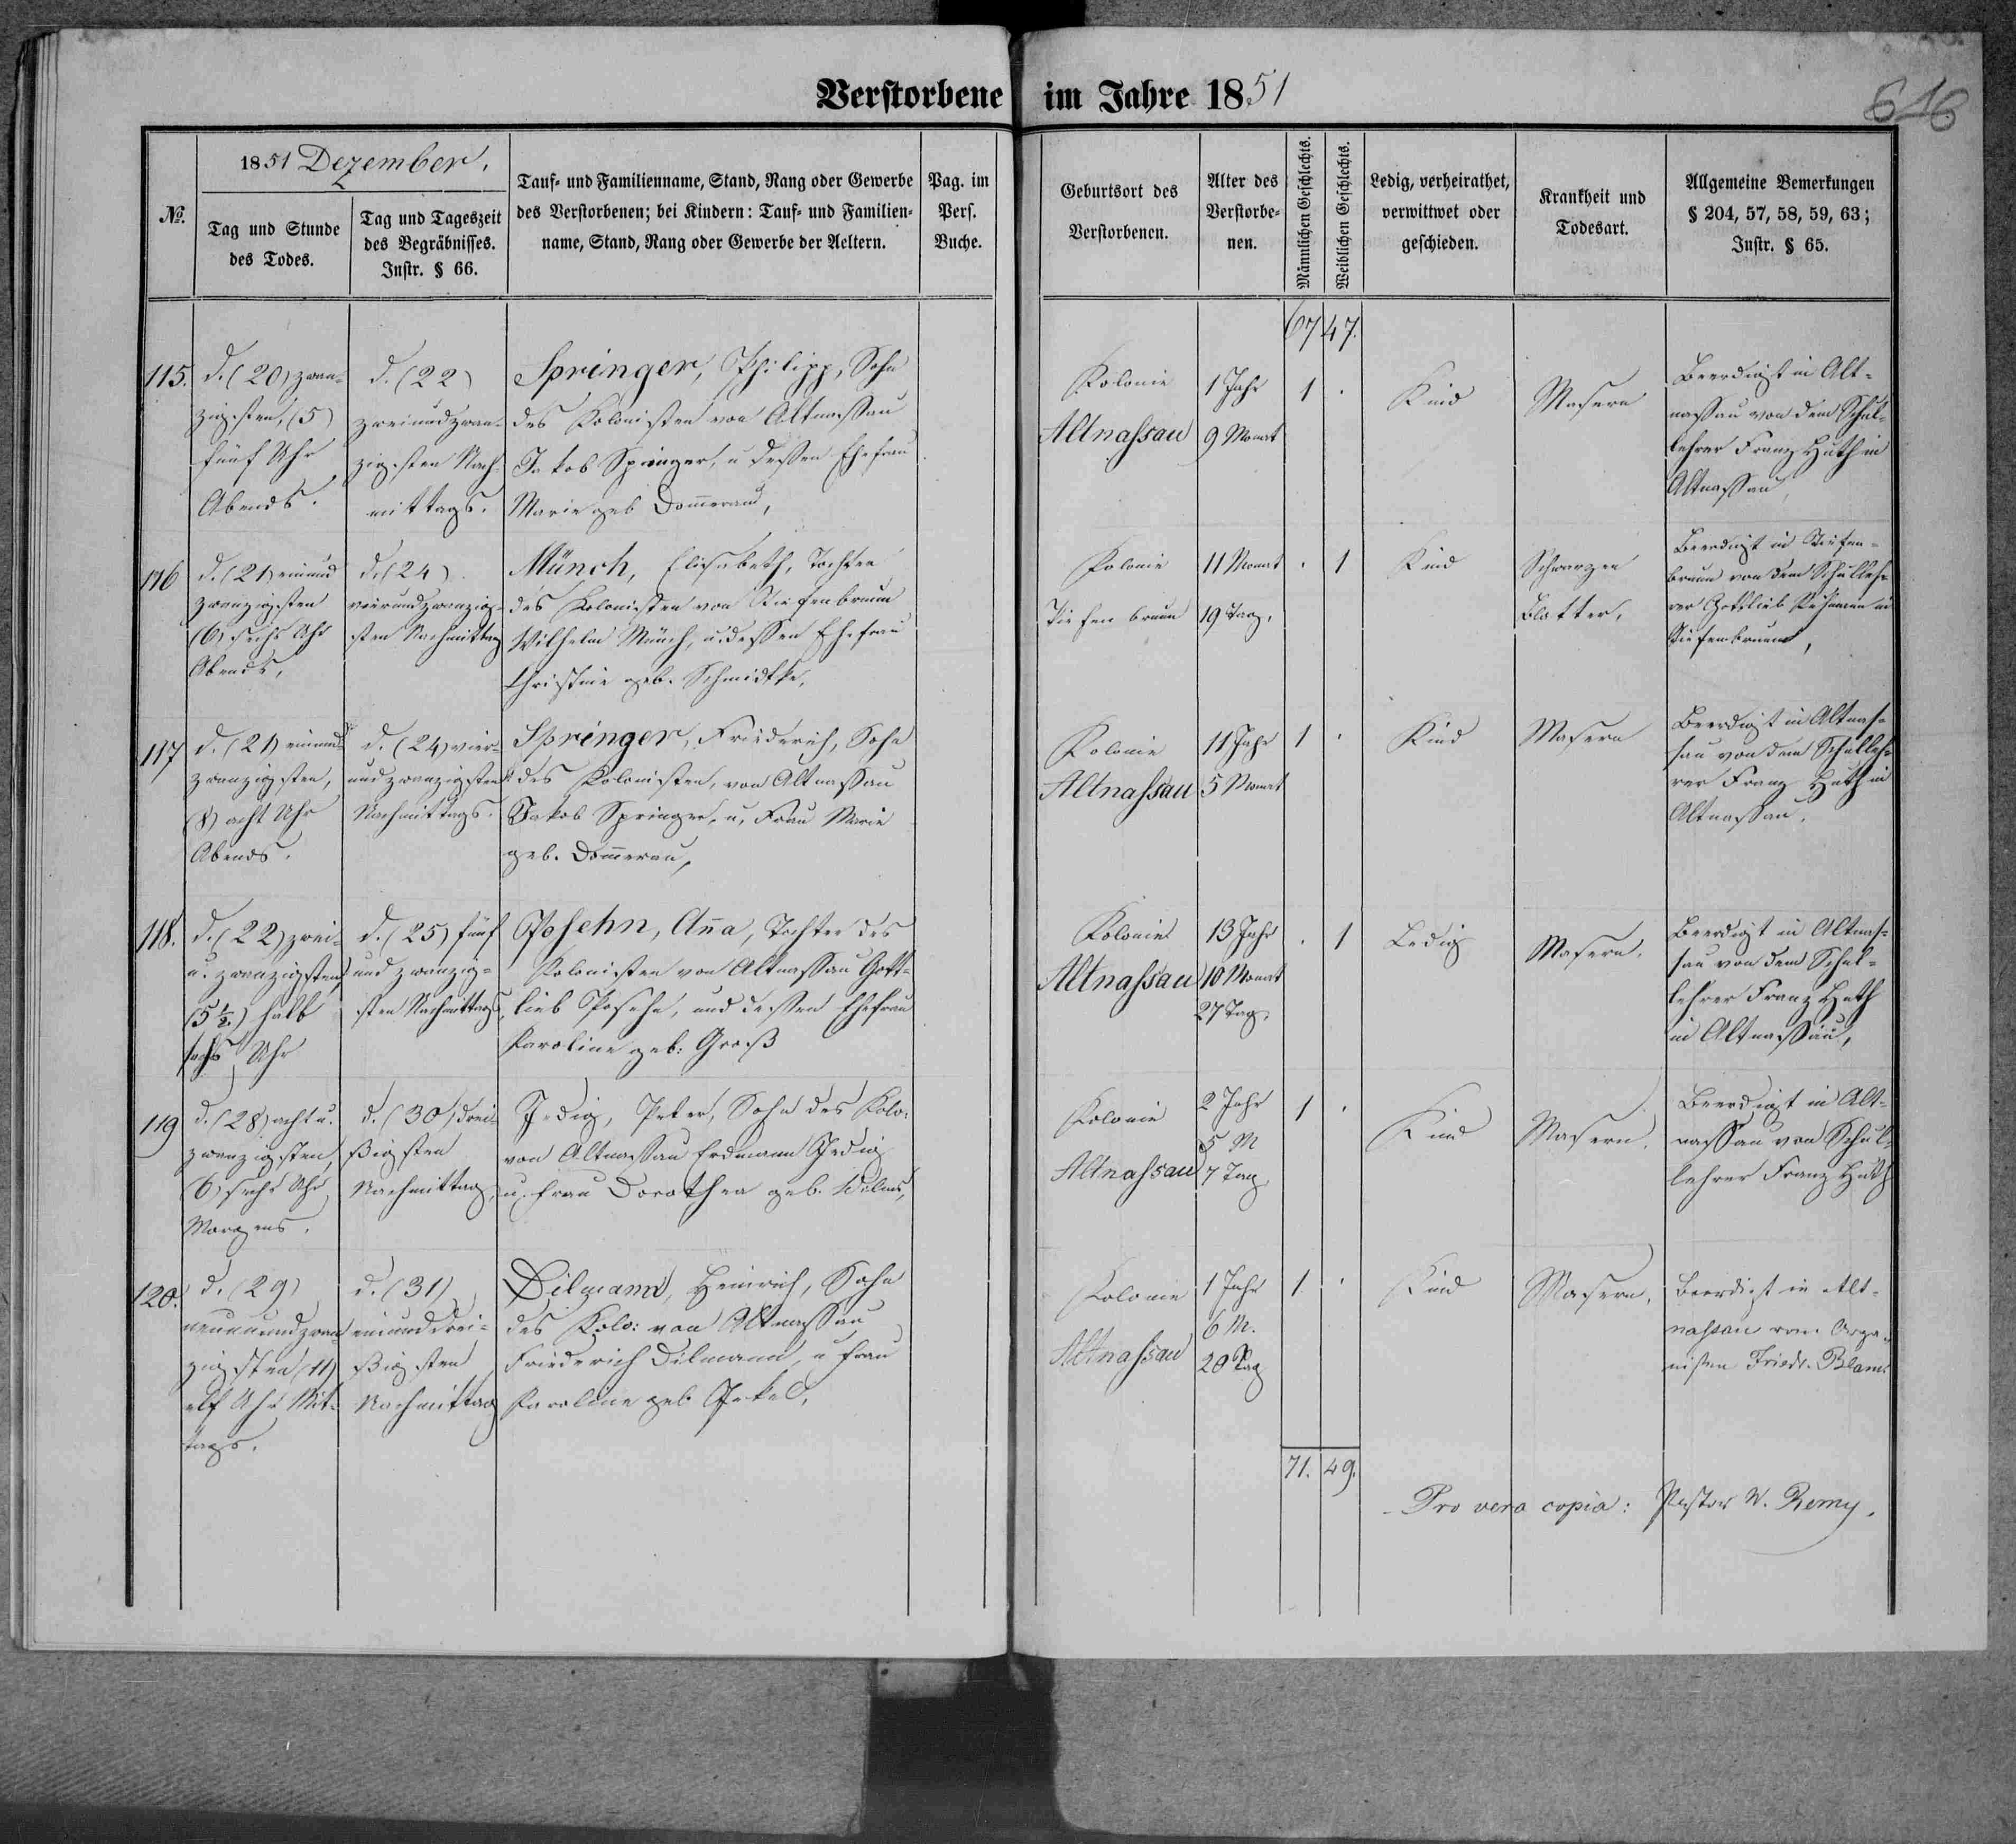 Verstorbene im Jahre 1851
616
1851 Dezember.
№.
Tag und Stunde
des Todes.
Tag und Tageszeit
des Begräbnisses.
Instr. § 66.
Tauf- und Familienname, Stand, Rang oder Gewerbe
des Verstorbenen; bei Kindern: Tauf- und Familien-
name, Stand, Rang oder Gewerbe der Aeltern.
Pag. im
Pers.
Buche.
Geburtsort des
Verstorbenen.
Alter des
Verstorbe-
nen.
Männlichen Geschlechts.
Weiblichen Geschlechts.
Ledig, verheirathet,
verwittwet oder
geschieden.
Krankheit und
Todesart.
Allgemeine Bemerkungen
§ 204, 57, 58, 59, 63;
Instr. § 65.
67 47.
115.
d. (20) zwan-
zigsten, (5)
fünf Uhr
Abends.
d. (22)
zweiundzwan-
zigsten Nach-
mittags.
Springer, Philipp, Sohn
des Kolonisten von Altnassau
Jakob Springer, u dessen Ehefrau
Marie geb
Kolonie
Altnassau
1 Jahr
9 Monat
1 .
Kind
Masern
Beerdigt in Alt-
nassau von dem Schul-
lehrer Franz Huth in
Altnassau
116
d. (21) einund
zwanzigsten
(6) sechs Uhr
Abends,
d. (24)
vierundzwanzig-
sten Nachmittag
Münch, Elisabeth, Tochter
des Kolonisten von Tiefenbrunn
Wilhelm Münch, u. dessen Ehefrau
Christine geb. Schmidtke,
Kolonie
Tiefenbrunn
11 Monat
19 Tag.
. 1
Kind
Schwarzen
Blatter.
Beerdigt in Tiefen-
brunn von dem Schulleh-
rer Gottlieb in
Tiefenbrunn,
117
d. (21) einund-
zwanzigsten,
(8) acht Uhr
Abends.
d. (24) vier-
undzwanzigsten
Nachmittags.
Springer, Friederich, Sohn
des Kolonisten, von Altnassau
Jakob Springer, u. Frau Marie
geb. Dom̄erau,
Kolonie
Altnassau
11 Jahr
5 Monat
1 .
Kind
Masern
Beerdigt in Altnas-
sau von dem Schulleh-
rer Franz Huth in
Altnassau.
118.
d. (22) zwei-
u. zwanzigsten
(5½.) halb
sechs Uhr
d. (25) fünf
und zwanzig-
sten Nachmittags
Posehn, An̄a, Tochter des
Kolonisten von Altnassau Gott-
lieb Posehn, und dessen Ehefrau
Karoline geb: Groß
Kolonie
Altnassau
13 Jahr
10 Monat
27 Tag.
. 1
Ledig
Masern.
Beerdigt in Altnas-
sau von dem Schul-
lehrer Franz Huth
in Altnassau,
119
d. (28) acht u.
zwanzigsten,
(6) sechs Uhr
Morgens.
d. (30) drei-
ßigsten
Nachmittag
Jedig, Peter, Sohn des Kolo:
von Altnassau Erdmann Jedig
u. Frau Dorothea geb. Wilms,
Kolonie
Altnassau
2 Jahr
5 M
7 Tag.
1 .
Kind
Masern.
Beerdigt in Alt-
nassau von Schul-
lehrer Franz Huth
120.
d. (29)
neunundzwan-
zigsten (11)
elf Uhr Mit-
tags.
d. (31)
einunddrei-
ßigsten
Nachmittag
Dilmann, Heinrich, Sohn
des Kolo: von Altnassau
Friederich Dilmann, u Frau
Karoline geb. Jekel,
Kolonie
Altnassau
1 Jahr
6 M.
20 Tag
1 .
Kind
Masern.
Beerdigt in Alt-
nassau vom Orga-
nisten Friedr.
71. 49.
Pro vera copia: Pastor W. Remy.